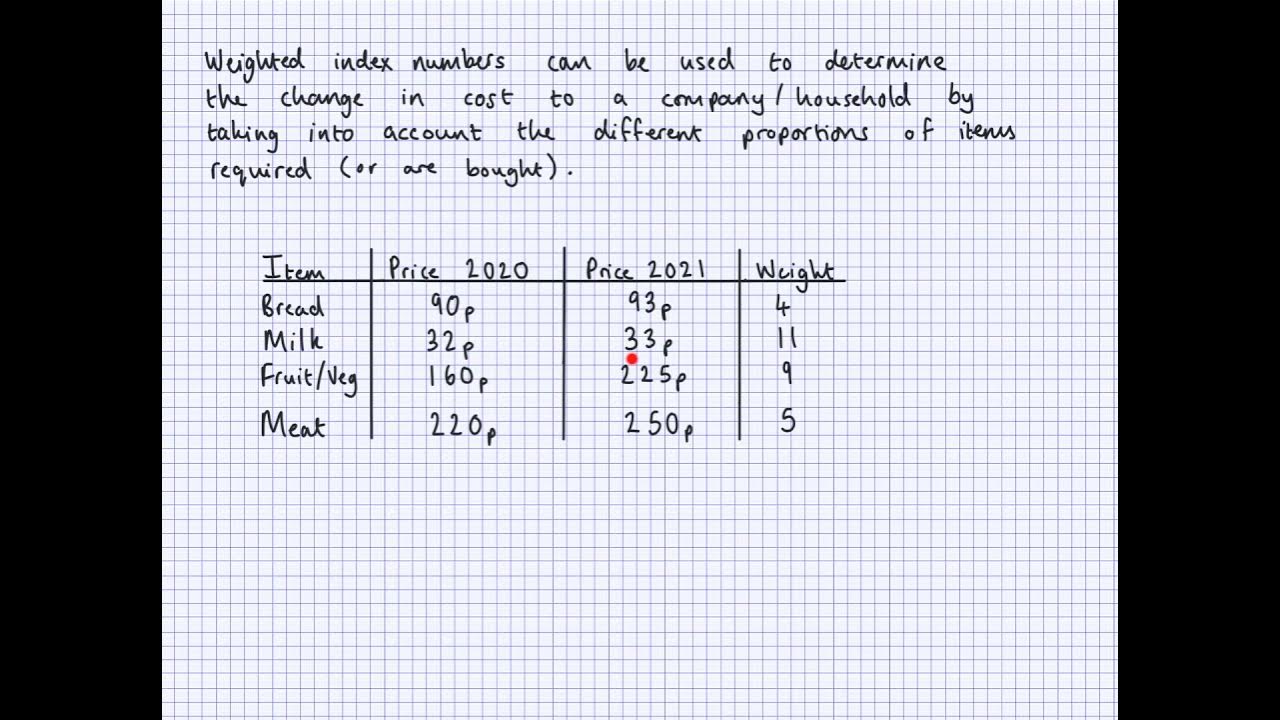 Weighted index numbers can be used to determine
the change in cost to a company/household by
taking into account the different proportions of items
required (or are bought).
Item Price 2020 Price 2021 Weight
Bread 90p 93p 4
Milk 32p 33p 11
Fruit/Veg 160p 225p 9
Meat 220p 250p 5